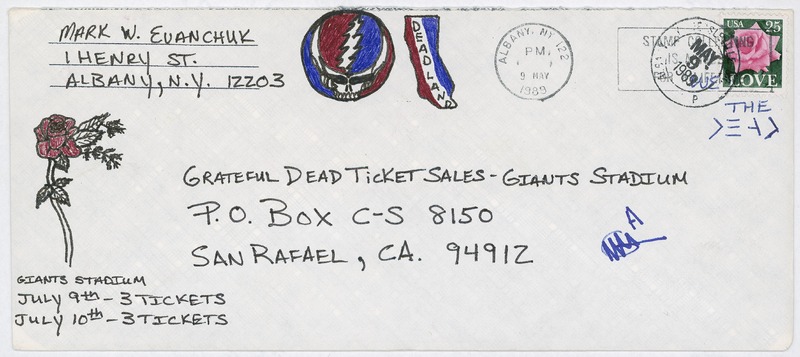 MARK W. EVANCHUK
1 HENRY ST.
ALBANY, N.Y. 12203
DEAD LAND
ALBANY, NY 122
PM
9 MAY
1989
STAMP
IS
MAY
9
1989
P
USA 25
LOVE
THE
DEAD
GRATEFUL DEAD TICKET SALES - GIANTS STADIUM
P.O. BOX C-S 8150
SAN RAFAEL, CA. 94912
A
GIANTS STADIUM
JULY 9th - 3 TICKETS
JULY 10th - 3 TICKETS